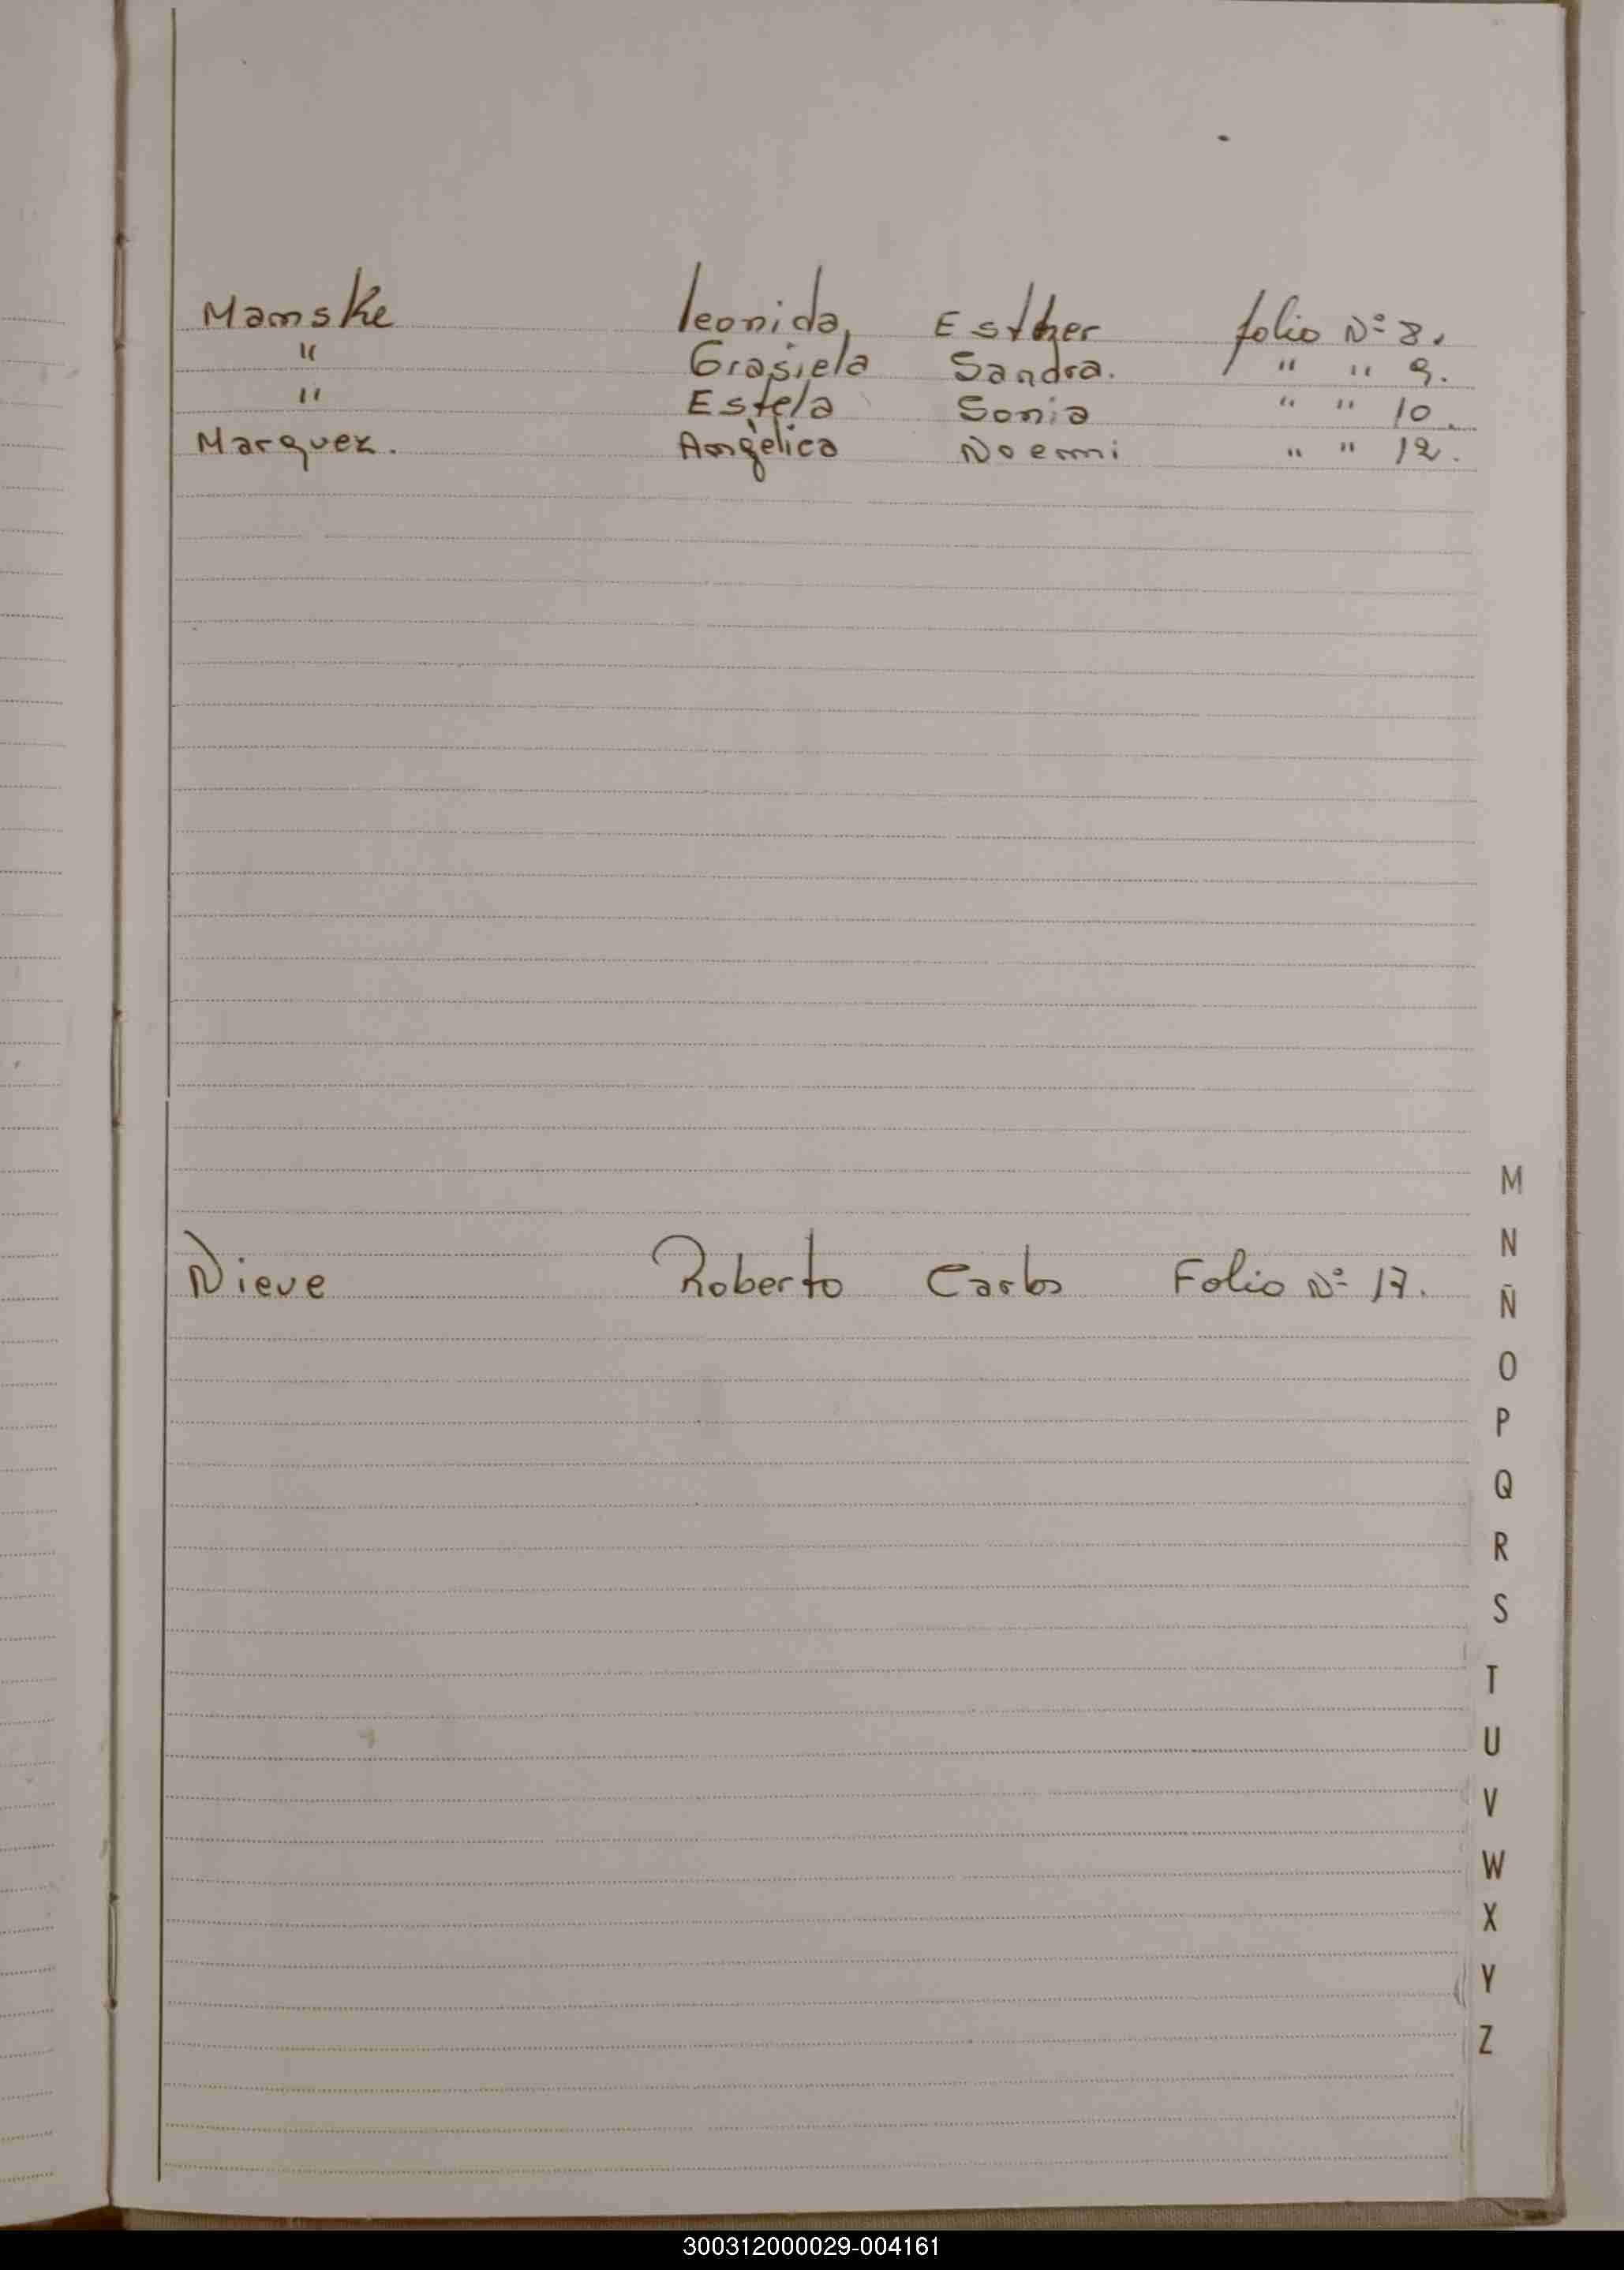 Manske leonida, Esther folio Nº 8.
" Grasiela Sandra. " " 9.
" Estela Sonia " " 10.
Marquez. Angèlica Noemi " " 12.
M
N
Nieve Roberto Carlos Folio Nº 17.
Ñ
O
P
Q
R
S
T
U
V
W
X
Y
Z
300312000029-004161